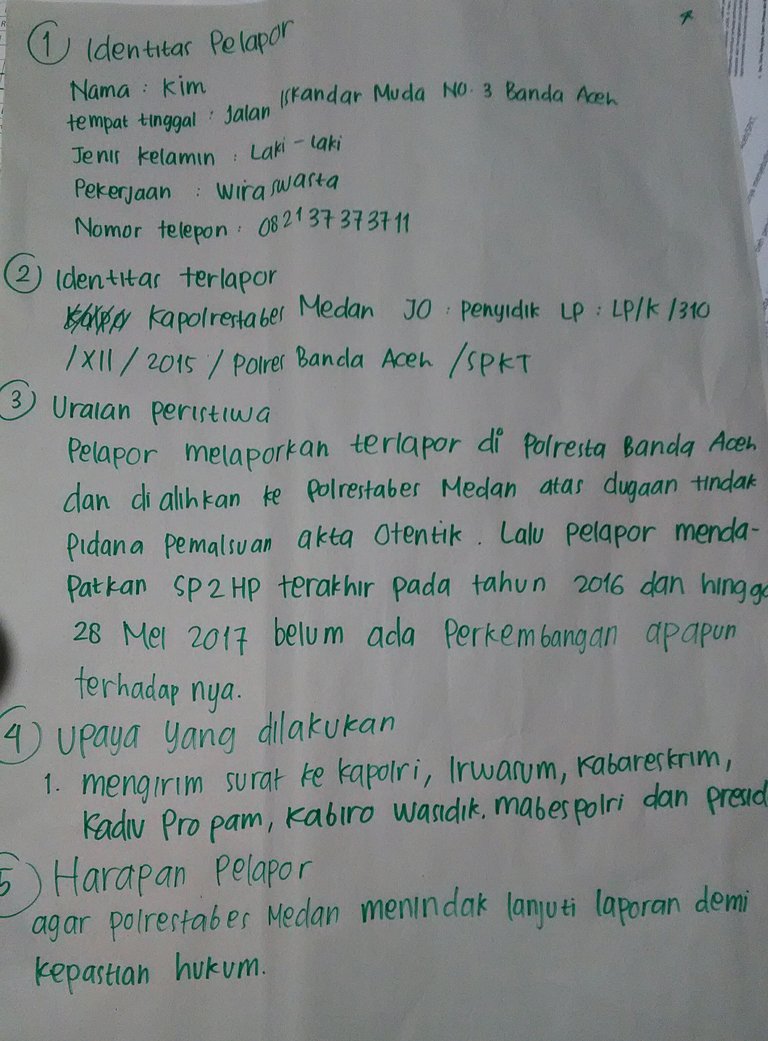 1 Identitas Pelapor
Nama : Kim
tempat tinggal : Jalan Iskandar Muda NO. 3 Banda Aceh
Jenis kelamin : Laki - laki
Pekerjaan : wiraswasta
Nomor telepon : 082137373711
2 Identitas terlapor
Kapolrestabes Medan JO : penyidik LP : LP/K/310
/XII/2015/Polres Banda Aceh/SPKT
3 Uraian peristiwa
Pelapor melaporkan terlapor di Polresta Banda Aceh
dan di alihkan ke Polrestabes Medan atas dugaan tindak
Pidana pemalsuan akta Otentik. Lalu pelapor menda-
Patkan SP2HP terakhir pada tahun 2016 dan hingga
28 Mei 2017 belum ada Perkembangan apapun
terhadap nya.
4) upaya yang dilakukan
1. mengirim surat ke kapolri, Irwasum, Kabareskrim,
Kadiv Propam, Kabiro wasidik. mabespolri dan presid
5) Harapan Pelapor
agar polrestabes Medan menindak lanjuti laporan demi
kepastian hukum.